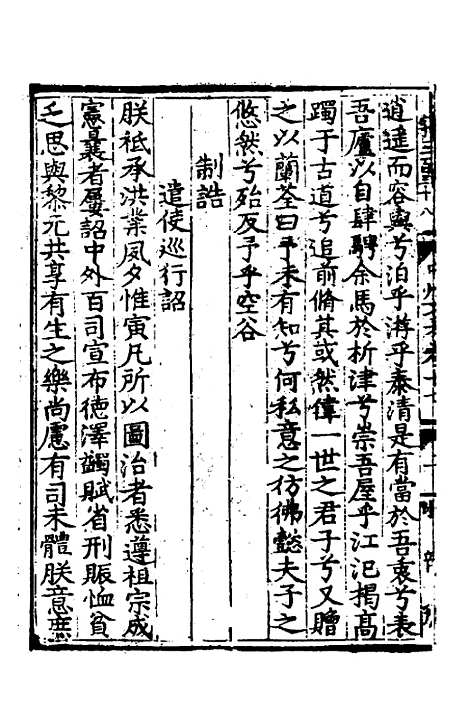 逍遥而容與兮泊乎游乎泰清是有當於吾衷兮表
吾廬以自肆騁余馬於析津兮崇吾屋乎江汜揭高
躅于古道兮追前脩其或然偉一世之君子兮又贈
之以蘭荃曰予未有知兮何私意之仿彿懿夫子之
悠然兮殆反予乎空谷
制誥
遣使巡行詔
朕祗承洪業夙夕惟寅凡所以圖治者悉遵祖宗成
憲曩者屢詔中外百司宣布德澤蠲賦省刑賑恤貧
乏思與黎元共享有生之樂尚慮有司未體朕意庶